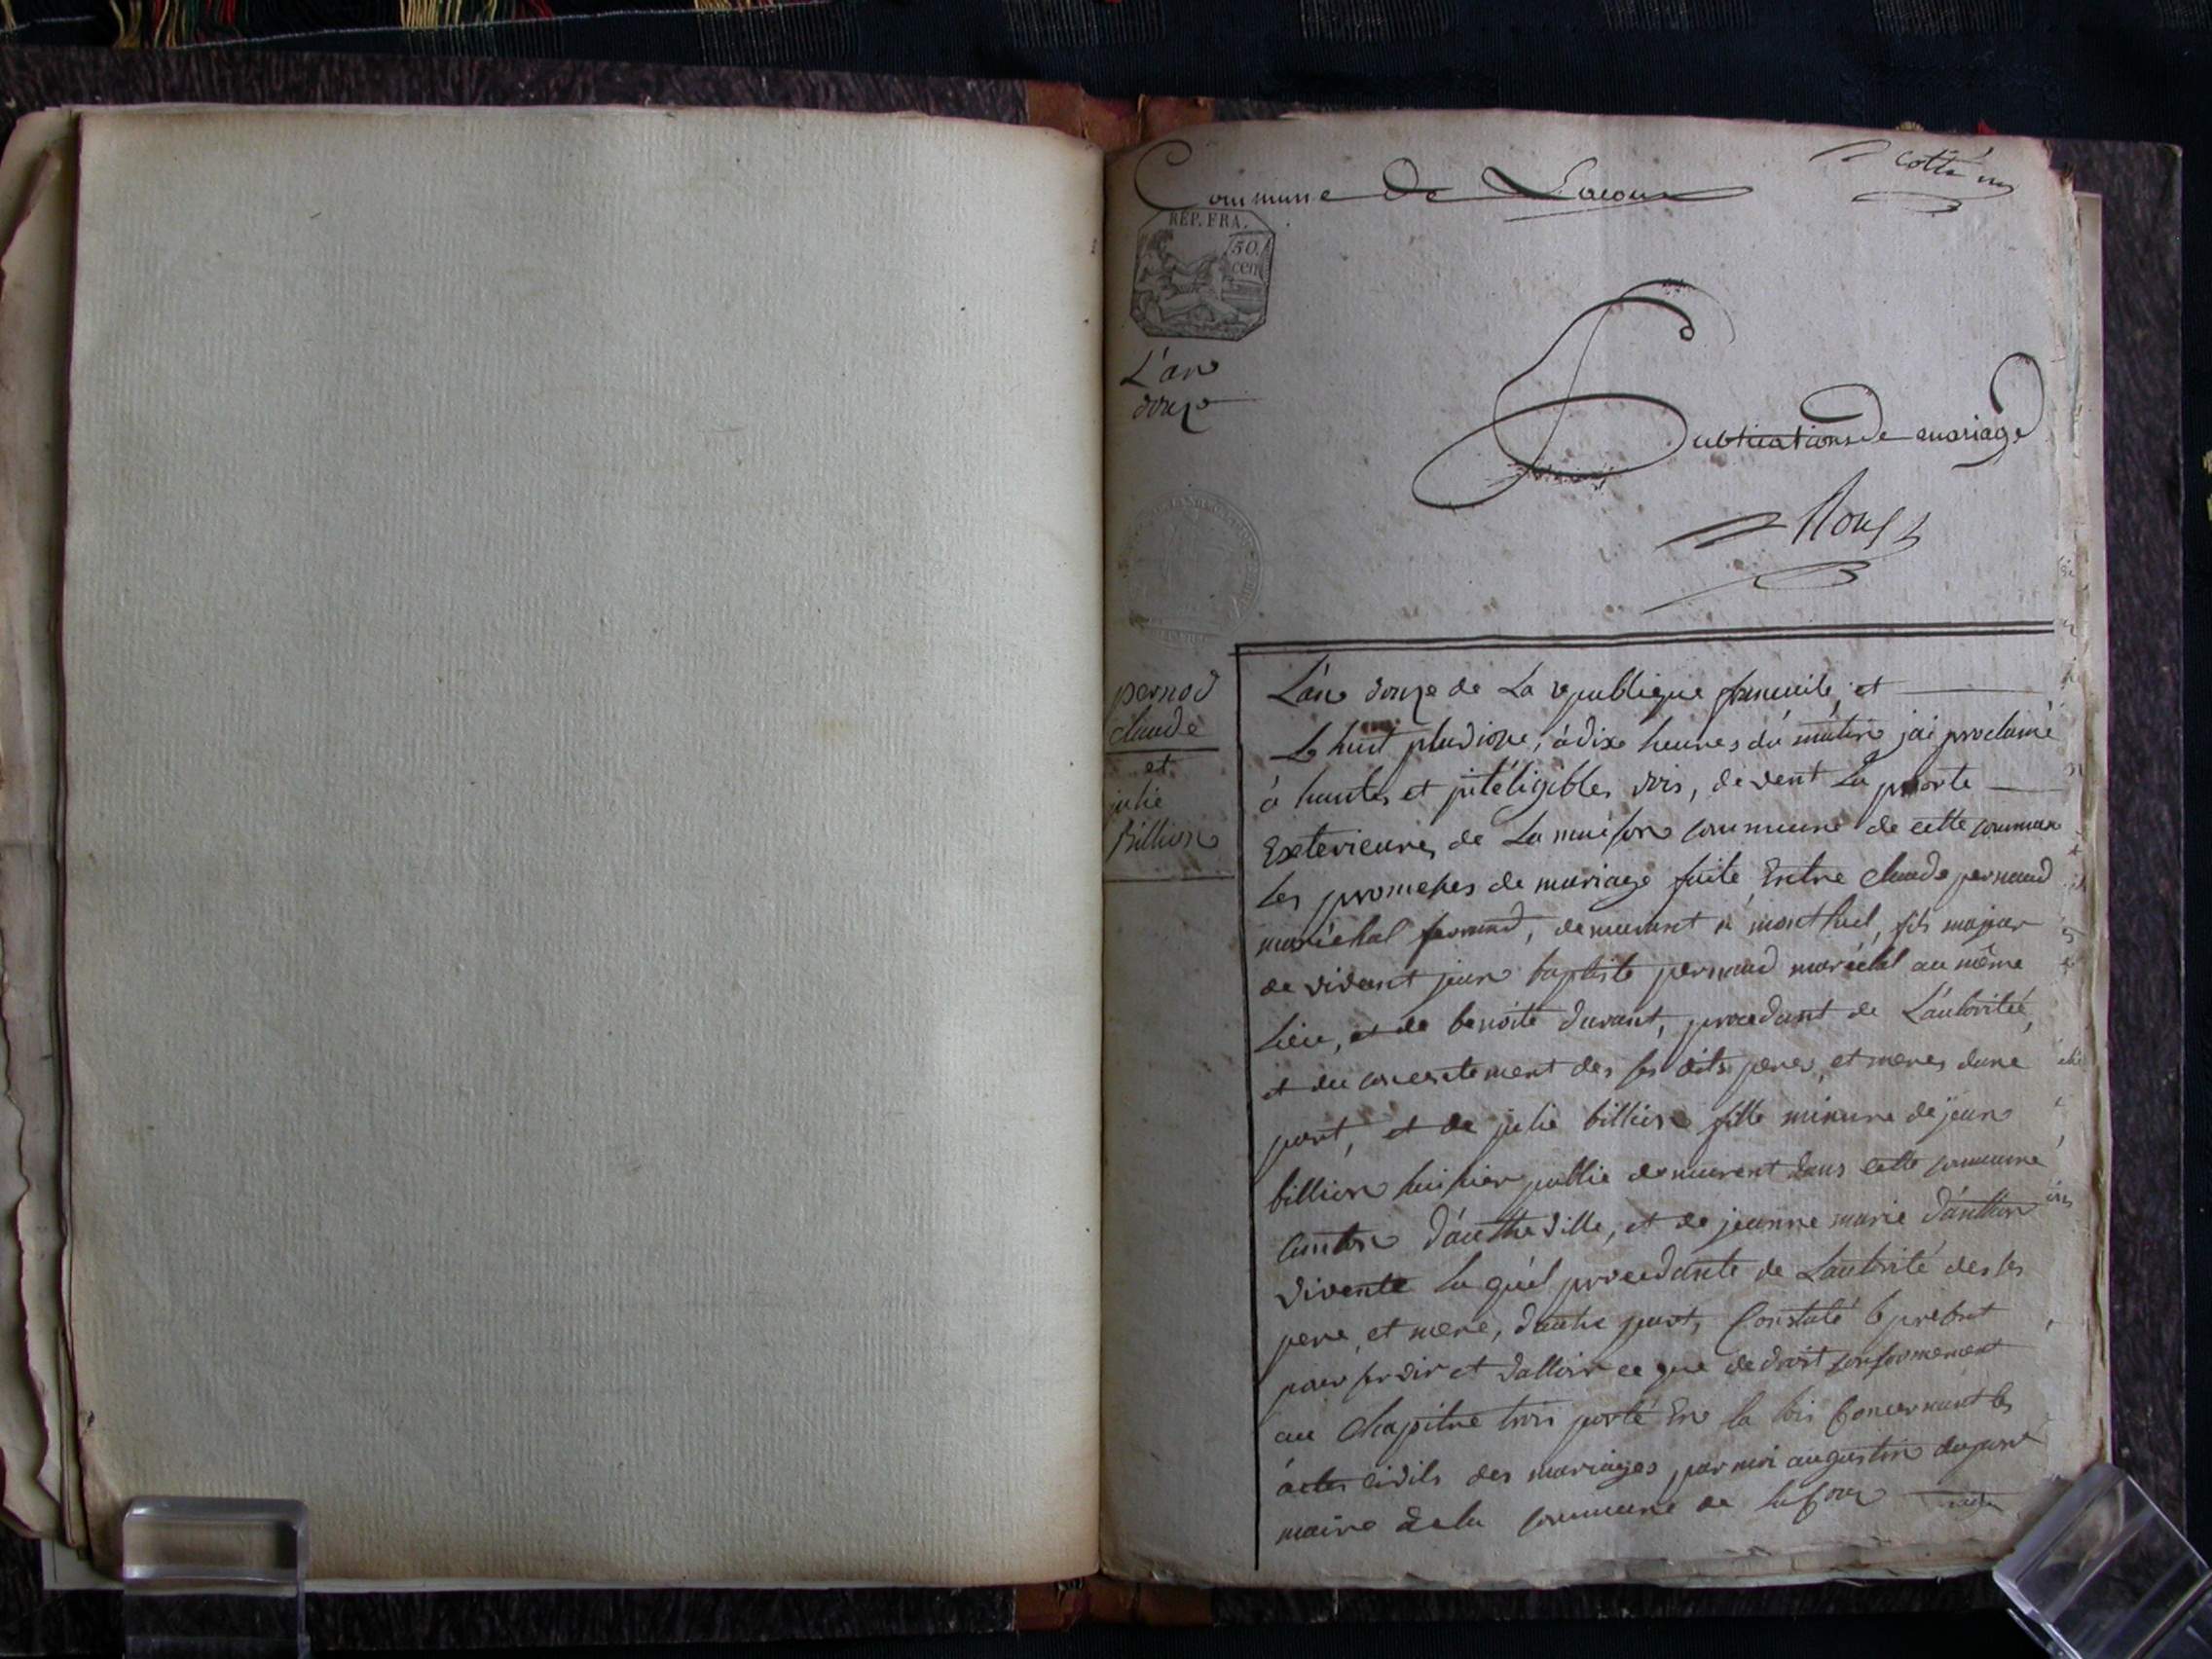 Commune De Lacoux
cotté un
REP. FRA.
50.
cen
L'an
douze
Publications de mariage
pernod
claude
et
julie
Billion
L'an douze de La republique francaise, et
Le huit pludiose, à dixe heures du matin jai proclamé
à hautes et inteligibles vois, devent La porte
Exterieures de La maison commune de cette commune
les promesses de mariage faite Entre claude pernaud
maréchal ferrand, demeurant à monthuel, fils majeur
de vivant jean baptiste pernaud maréchal au même
Lieu, et de benoite durant, procedant de L'autoritée,
et du consentement des ses dits peres, et meres dune
part, et de julie billion fille mineure de jean
billion huissier public demeurent dans cette commune
canton d'autheville, et de jeanne marie d'anthon
vivente la quel procedante de Lautorité des ses
pere, et mere, dautre part, Constaté le present
pour servir et valloir ce que de droit conformement
au chapitre trois porté En la lois Concernant les
actes civils des mariages par moi augustin dupont
maire de la commune de lacoux